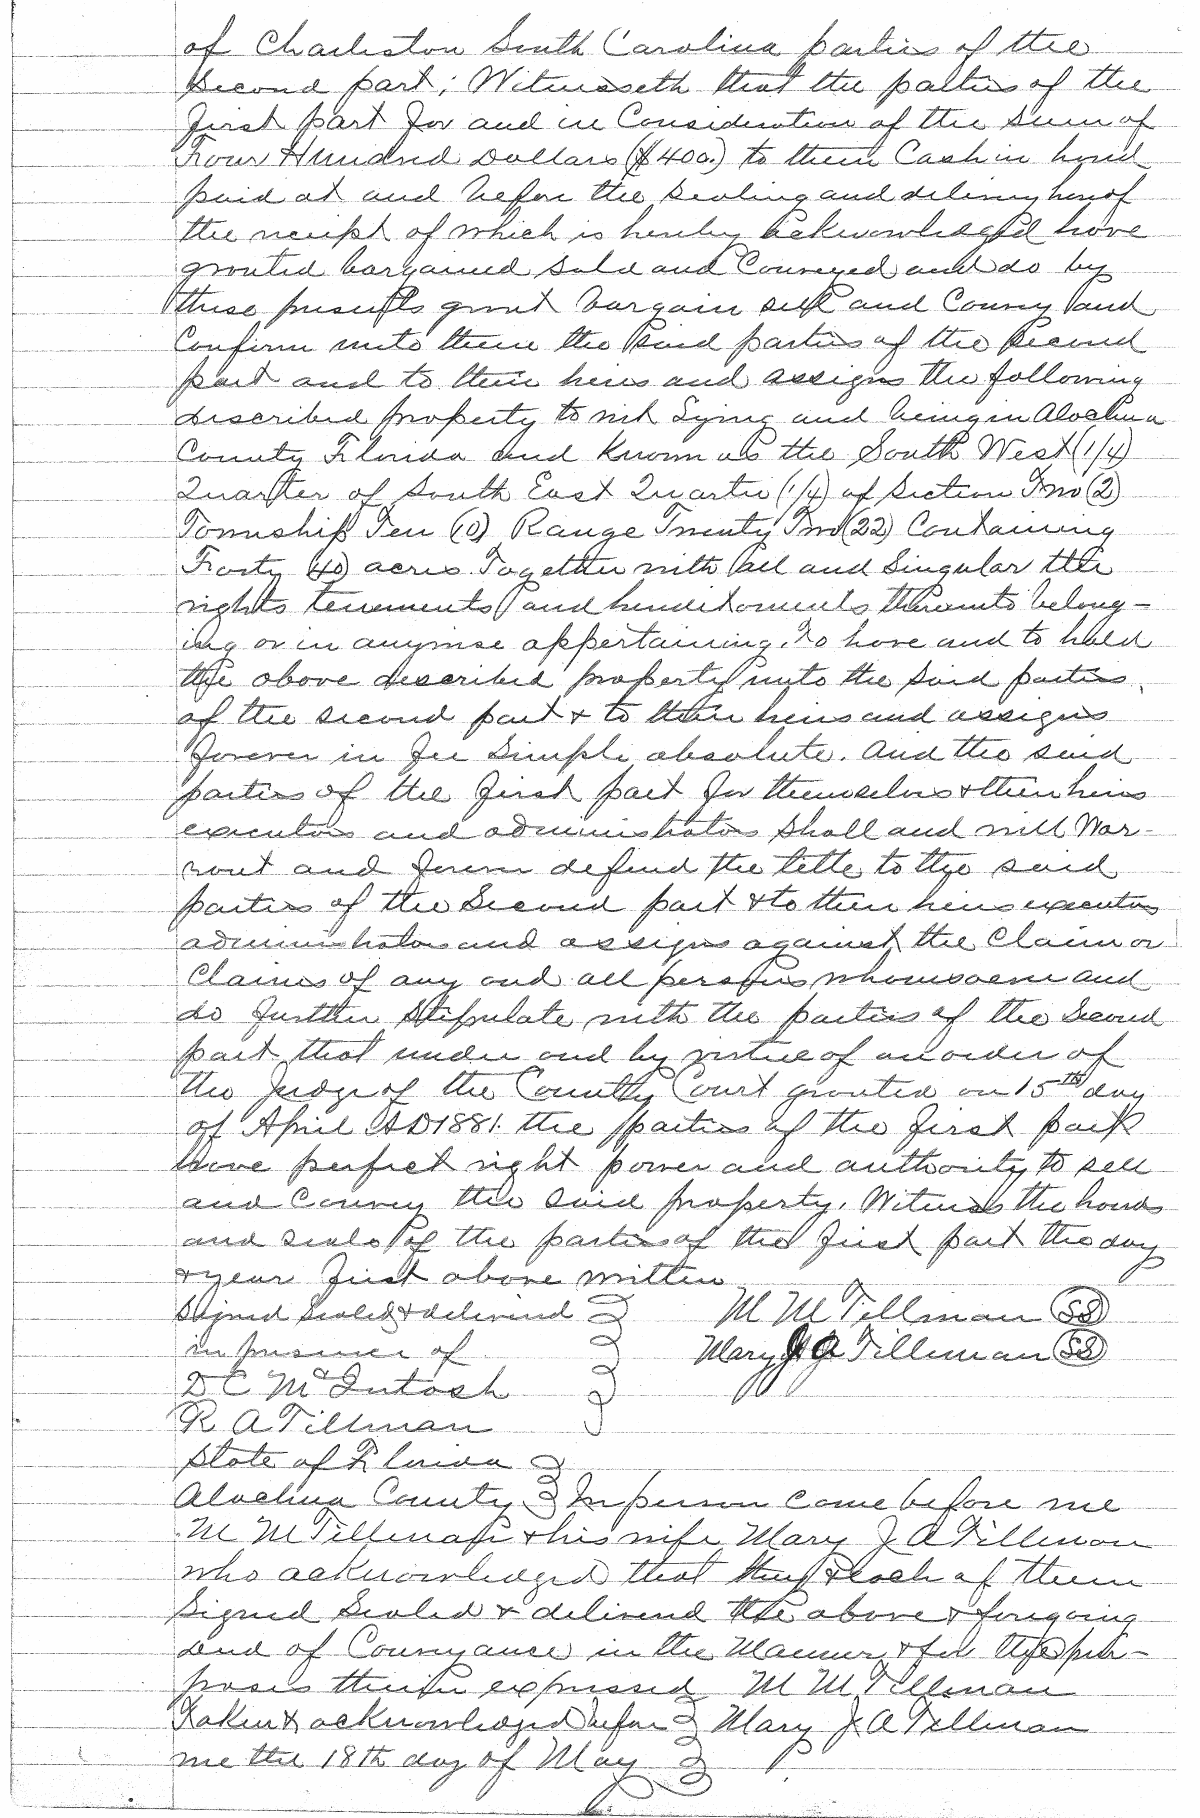 of Charleston South Carolina parties of the
Second part; Witnesseth that the parties of the
first part for and in Consideration of the Sum of
Four Hundred Dollars ($400.) to them Cash in hand
paid at and before the sealing and delivery hereof
the receipt of which is hereby acknowledged have
granted bargained sold and Conveyed and do by
these presents grant bargain sell and Convey and
Confirm unto them the said parties of the Second
part and to their heirs and assigns the following
described property to wit Lying and being in Alachua
County Florida and Known as the South West (1/4)
Quarter of South East Quarter (1/4) of Section Two (2)
Township Ten (10) Range Twenty Two (22) Containing
Forty (40) acres Together with all and Singular the
rights tenements and hereditaments thereunto belong-
ing or in anywise appertaining. To have and to hold
the above described property unto the said parties
of the second part & to their heirs and assigns
forever in fee Simple absolute. And the said
parties of the first part for themselves & their heirs
executors and administrators Shall and will War-
rant and forever defend the title to the said
parties of the Second part & to their heirs executors
administrators and assigns against the Claim or
Claims of any and all persons whomsoever and
do further Stipulate with the parties of the Second
part that under and by virtue of an order of
the Judge of the County Court granted on 15th day
of April AD 1881. the parties of the first part
have perfect right power and authority to sell
and Convey the said property. Witness the hands
and seals of the parties of the first part the day
& year first above written
Signed Sealed & delivered M M Tillman SS
in presence of Mary J A Tillman SS
D C McIntosh
R A Tillman
State of Florida
Alachua County In person came before me
M M Tillman & his wife Mary J A Tillman
who acknowledged that they & each of them
Signed Sealed & delivered the above & foregoing
deed of Conveyance in the Manner & for the pur-
poses therein expressed M M Tillman
Taken & acknowledged before Mary J A Tillman
me the 18th day of May